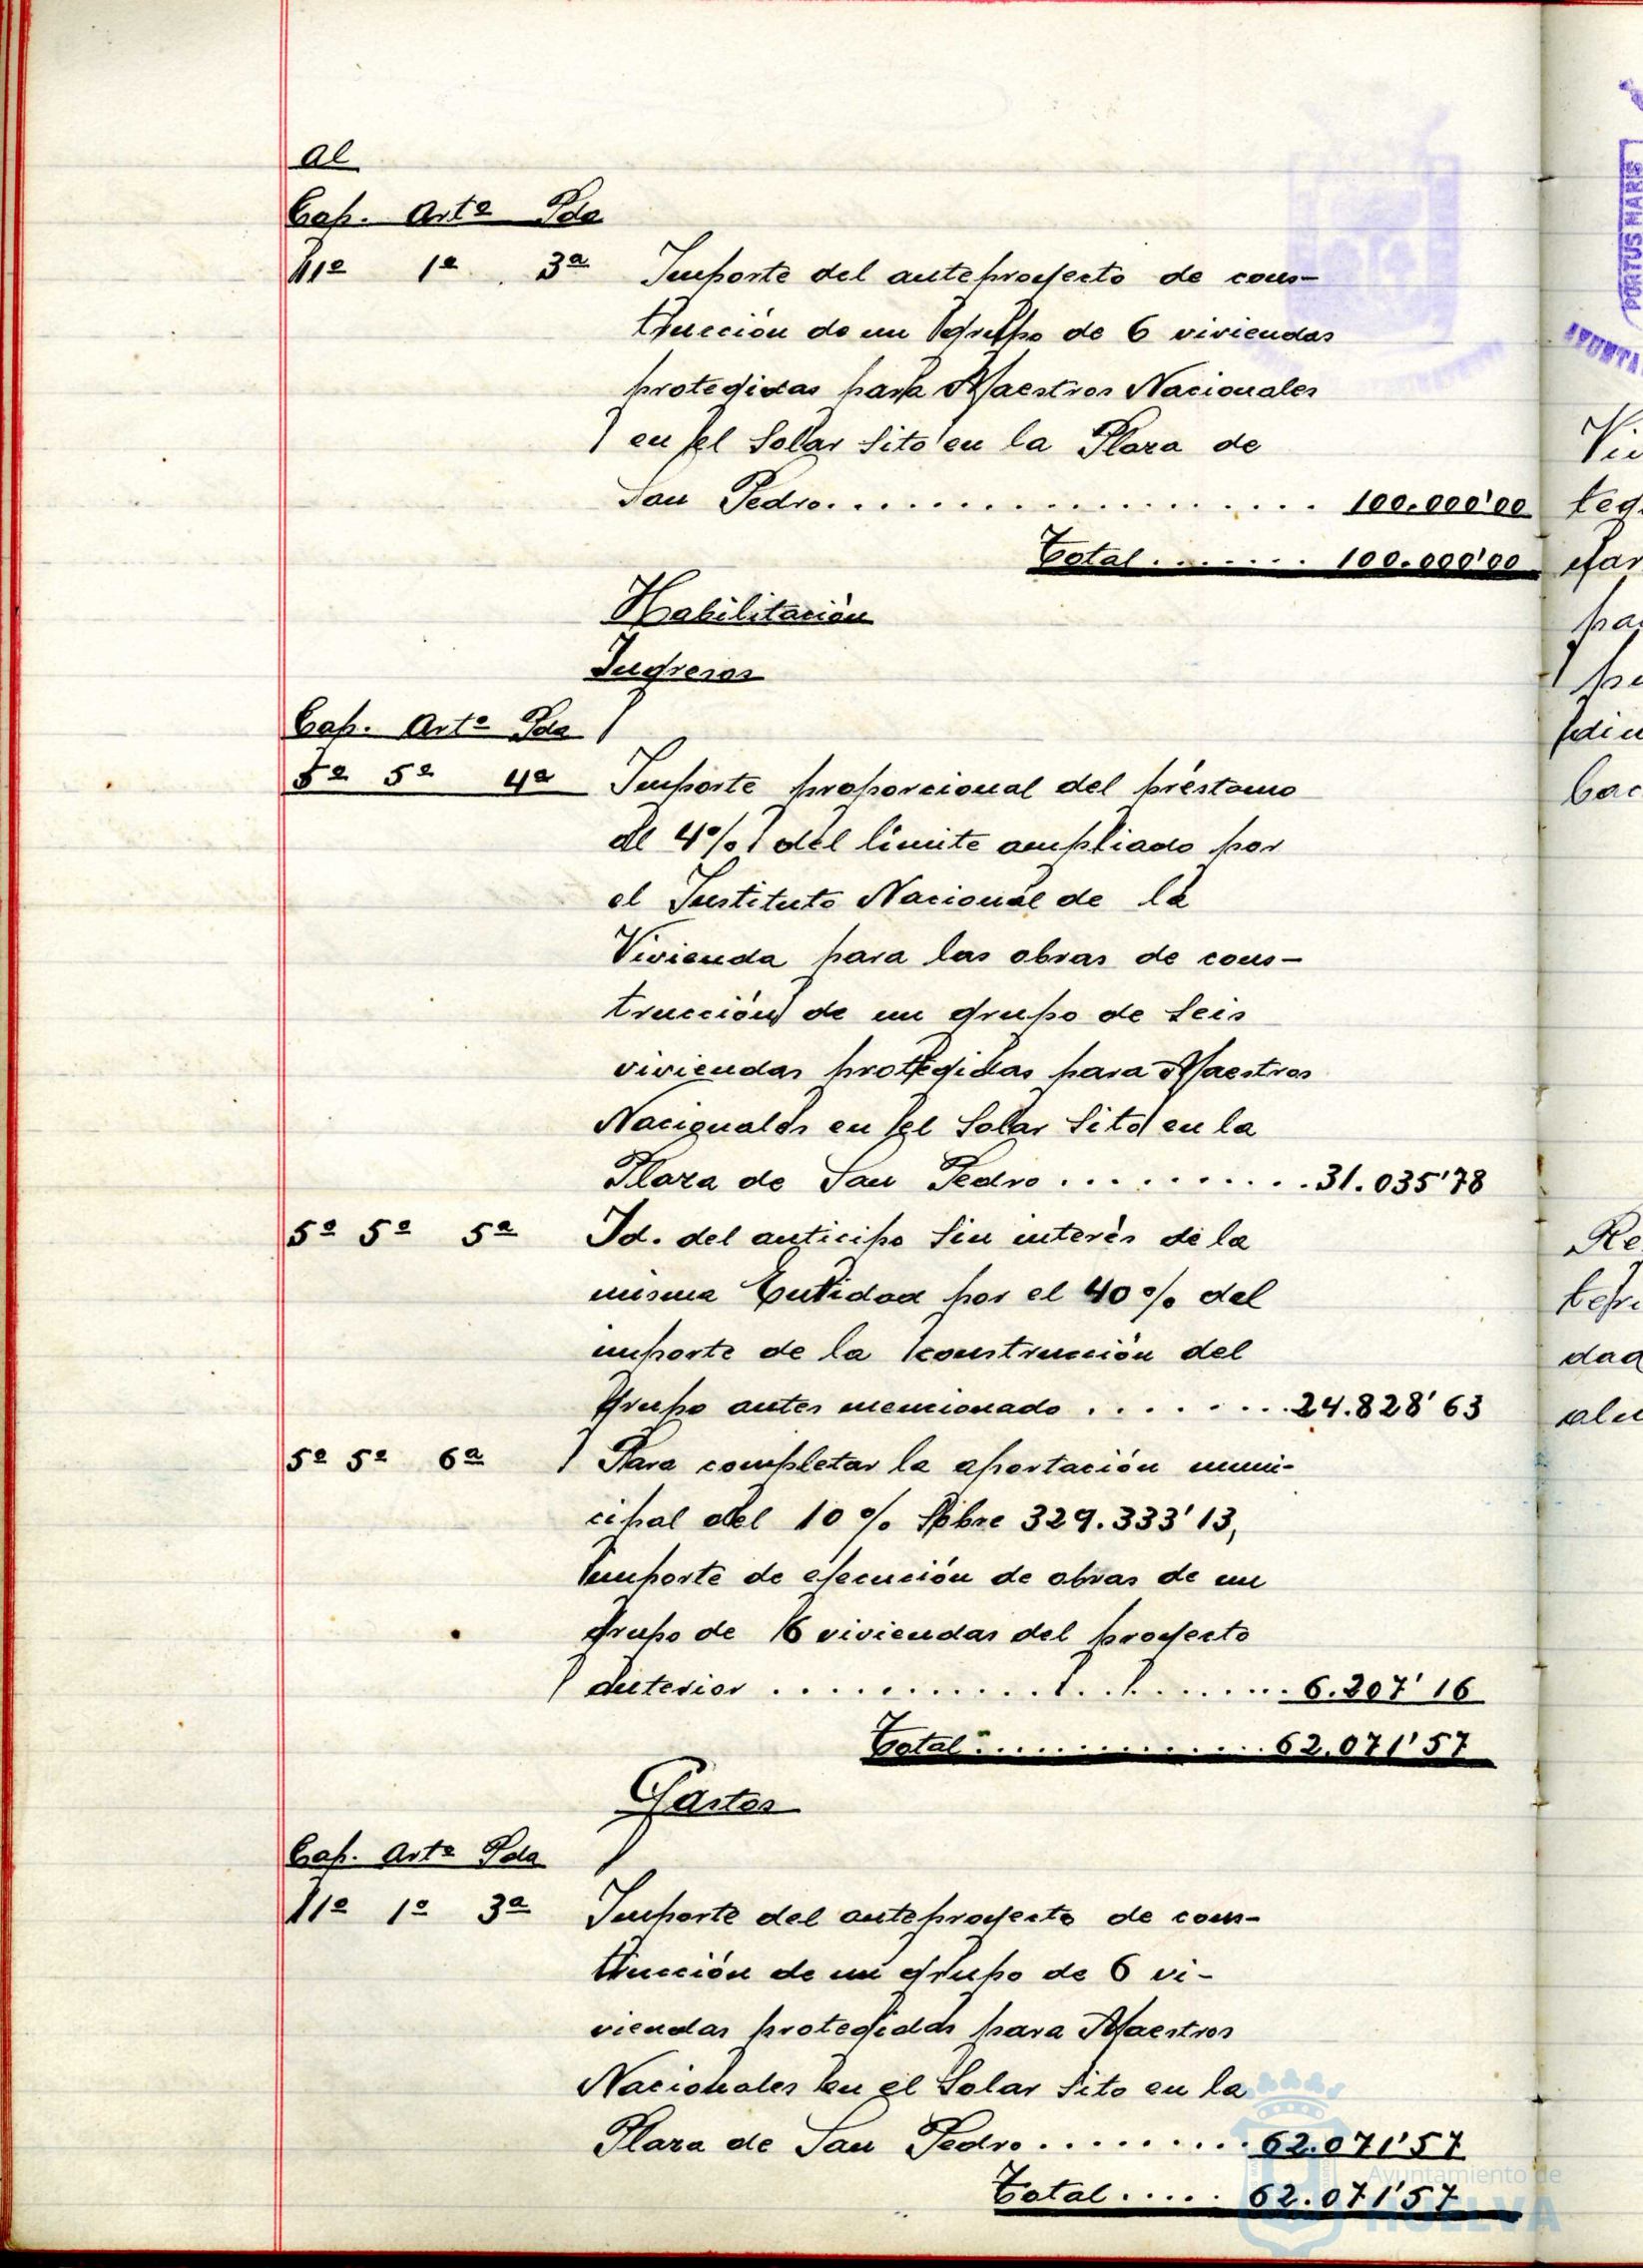 Al
Cap. Artº Pda
11º 1º 3ª Importe del anteproyecto de cons-
trucción de un grupo de 6 viviendas
protegidas para Maestros Nacionales
en el Solar Sito en la Plaza de
San Pedro.................... 100.000'00
Total........ 100.000'00
Habilitación
Ingresos
Cap. Artº Pda
5º 5º 4ª Importe proporcional del préstamo
al 4% del límite ampliado por
el Instituto Nacional de la
Vivienda para las obras de cons-
trucción de un grupo de Seis
viviendas protegidas para Maestros
Nacionales en el Solar Sito en la
Plaza de San Pedro ..........31.035'78
5º 5º 5ª Id. del anticipo Sin interés de la
misma Entidad por el 40% del
importe de la construcción del
Grupo antes mencionado ........24.828'63
5º 5º 6ª Para completar la aportación muni-
cipal del 10% Sobre 329.333'13,
importe de ejecución de obras de un
grupo de 6 viviendas del proyecto
anterior ....................6.207'16
Total..............62.071'57
Gastos
Cap. Artº Pda
11º 1º 3ª Importe del anteproyecto de cons-
trucción de un grupo de 6 vi-
viendas protegidas para Maestros
Nacionales en el Solar Sito en la
Plaza de San Pedro.........62.071'57
Total..... 62.071'57
PORTUS MARIS
Ayuntamiento de
HUELVA